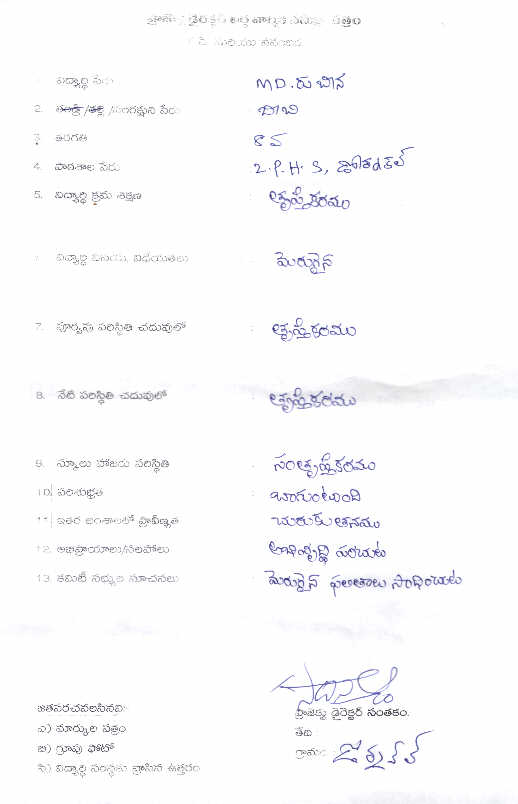 1. విద్యార్థి పేరు : MD. రుబీన
2. తండ్రి/తల్లి/సంరక్షుని పేరు : బాబి
3. తరగతి : 8వ
4. పాఠశాల పేరు : Z.P.H.S,
5. విద్యార్థి క్రమ శిక్షణ : తృప్తికరము
విద్యార్థి వినయ, విధేయతలు : మెరుగైన
7. పూర్వపు పరిస్థితి చదువులో : తృప్తికరము
8. నేటి పరిస్థితి చదువులో : తృప్తికరము
9. స్కూలు హాజరు పరిస్థితి : సంతృప్తికరము
10. పరిశుభ్రత : బాగుంటుంది
11. ఇతర అంశాలలో ప్రావీణ్యత : చురుకుతనము
12. అభిప్రాయాలు/సలహాలు : అభివృద్ధి పరచుట
13. కమిటీ సభ్యుల సూచనలు : మెరుగైన ఫలితాలు సాధించుట
ప్రాజెక్టు డైరెక్టర్ సంతకం.
జతపరచవలసినవి:
తేది
ఎ) మార్కుల పత్రం
గ్రామం:
బి) గ్రూపు ఫోటో
సి) విద్యార్థి స్వయంగా వ్రాసిన ఉత్తరం